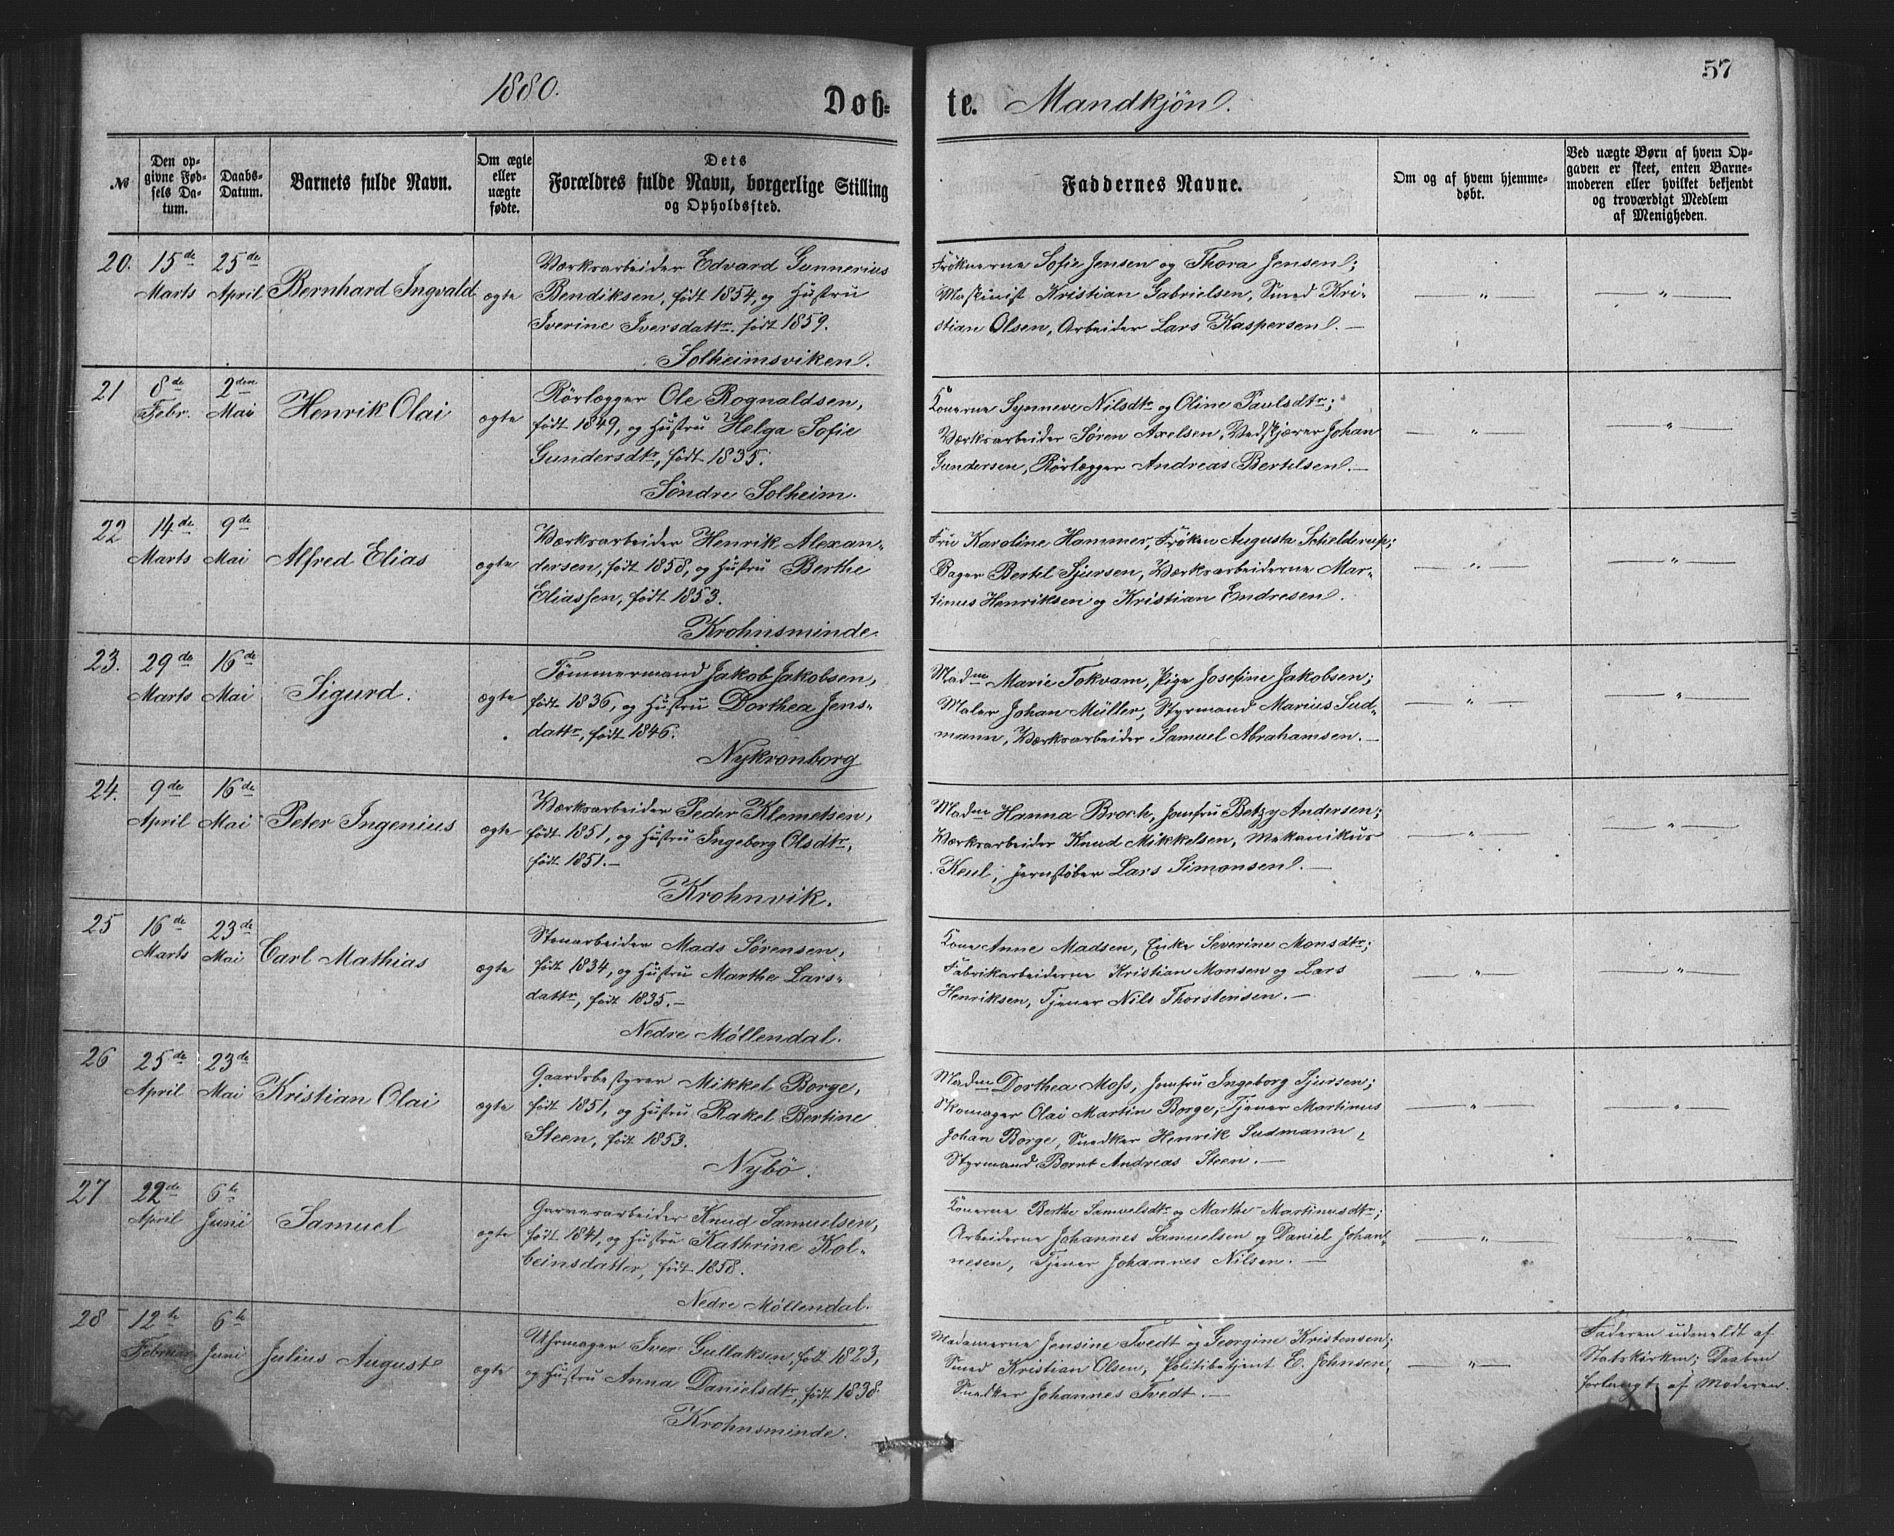 57
1880.
Døb-
te. Mandkjøn.
№
Den op-
givne Fød-
sels Da-
tum.
Daabs-
Datum.
Barnets fulde Navn.
Om ægte
eller
uægte
fødte.
Dets
Forældres fulde Navn, borgerlige Stilling
og Opholdssted.
Faddernes Navne.
Om og af hvem hjemme-
døbt.
Ved uægte Børn af hvem Op-
gaven er skeet, enten Barne-
moderen eller hvilket bekjendt
og troværdigt Medlem
af Menigheden.
20.
15de
Marts
25de
April
Bernhard Ingvald
ægte
Værksarbeider Edvard Gunnerius
Bendiksen, født 1854, og Hustru
Iverine Iversdattr. født 1859.
Solheimsviken.
Frøknerne Sofie Jensen og Thora Jensen;
Maskinist Kristian Gabrielsen, Smed Kri-
stian Olsen, Arbeider Lars Kaspersen. —
— " —
— " —
21
8de
Febr.
2den
Mai
Henrik Olai
ægte
Rørlægger Ole Rognaldsen,
født 1849, og Hustru Helga Sofie
Gundersdtr, født 1835.
Søndre Solheim.
Konerne Synneve Nilsdtr og Oline Paulsdtr;
Værksarbeider Søren Axelsen, Vedskjærer Johan
Gundersen, Rørlægger Andreas Bertelsen. —
— " —
— " —
22
14de
Marts
9de
Mai
Alfred Elias
ægte
Værksarbeider Henrik Alexan-
dersen, født 1858, og Hustru Berthe
Eliassen, født 1853.
Krohnsminde.
Fru Karoline Hammer, Frøken Augusta Schelderup;
Bager Bertel Sjursen, Værksarbeiderne Mar-
tinus Henriksen og Kristian Endresen.
— " —
— " —
23.
29de
Marts
16de
Mai
Sigurd.
ægte
Tømmermand Jakob Jakobsen,
født 1836, og Hustru Dorthea Jens-
dattr, født 1846.
Nykronborg
Madme Marie Tokvam, Pige Josefine Jakobsen;
Maler Johan Müller, Styrmand Marius Sud-
mann, Værksarbeider Samuel Abrahamsen. —
— " —
— " —
24.
9de
April
16de
Mai
Peter Ingenius
ægte
Værksarbeider Peder Klemetsen,
født 1851, og Hustru Ingeborg Olsdtr,
født 1851. —
Krohnvik.
Madme Hanna Broch, Jomfru Betzy Andersen;
Værksarbeider Knud Mikkelsen, Mekanikus
Keul, Jernstøber Lars Simonsen. —
— " —
— " —
25
16de
Marts
23de
Mai
Carl Mathias
ægte
Stenarbeider Mads Sørensen,
født 1834, og Hustru Marthe Lars-
dattr, født 1835. —
Nedre Møllendal.
Kone Anne Madsen, Enke Severine Monsdtr;
Fabrikarbeiderne Kristian Monsen og Lars
Henriksen, Tjener Nils Thorstensen. —
— " —
— " —
26
25de
April
23de
Mai
Kristian Olai
ægte
Gaardsbestyrer Mikkel Borge,
født 1851, og Hustru Rakel Bertine
Steen, født 1853.
Nybø.
Madme Dorthea Moss, Jomfru Ingeborg Sjursen;
Skomager Olai Martin Borge, Tjener Martinus
Johan Borge, Snedker Henrik Sudmann,
Styrmand Bernt Andreas Steen. —
— " —
— " —
27
22de
April
6te
Juni
Samuel
ægte
Garverarbeider Knud Samuelsen,
født 1841, og Hustru Kathrine Kol-
beinsdatter, født 1858.
Nedre Møllendal.
Konerne Berthe Samuelsdtr og Marthe Martinusdtr;
Arbeiderne Johannes Samuelsen og Daniel Johan-
nesen, Tjener Johannes Nilsen. —
— " —
— " —
28
12te
Februar
6te
Juni
Julius August
ægte
Uhrmager Iver Gullaksen, født 1823,
og Hustru Anna Danielsdtr, født 1838.
Krohnsminde.
Madamerne Jensine Tvedt og Georgine Kristensen;
Smed Kristian Olsen, Politibetjent E. Johnsen,
Snedker Johannes Tvedt. —
— " —
Faderen udmeldt af
Statskirken; Daaben
forlangt af Moderen.